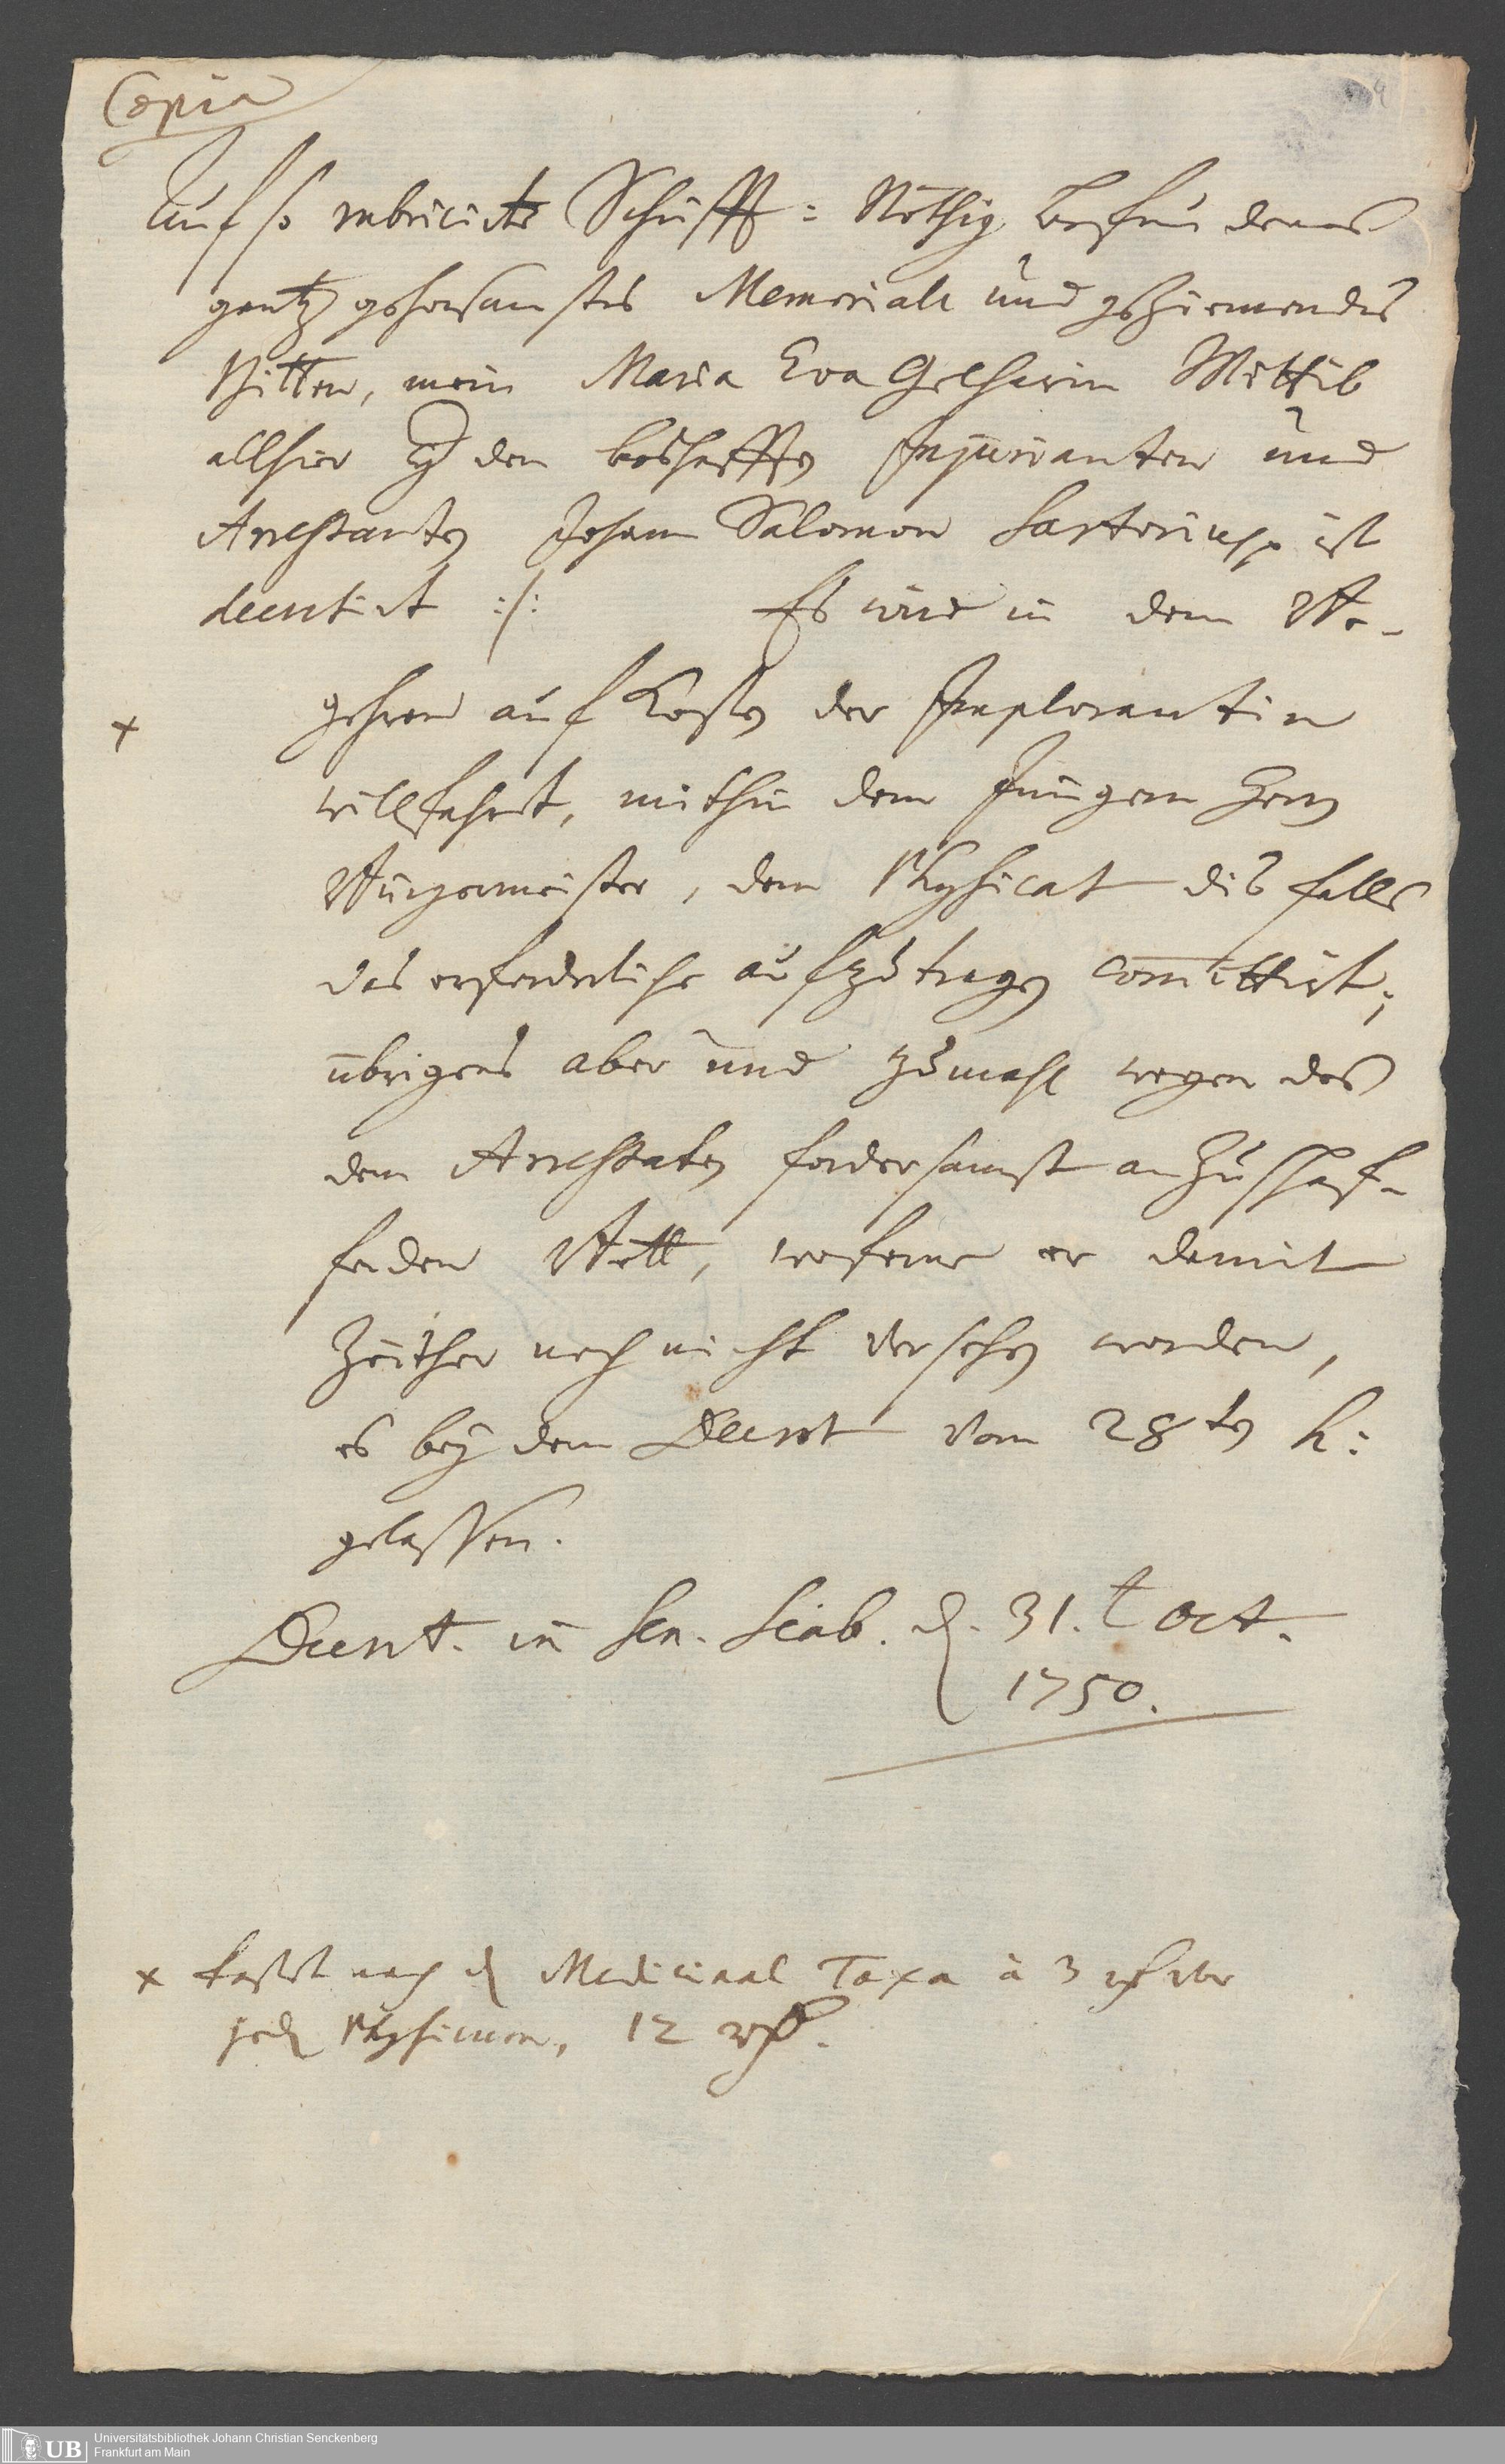 Copia
4
Auf so rubricirte Schrifft: Nöthig befundenes
gantz gehorsamstes Memoriale und geziemendes
Bitten, mein Maria Eva Gelharin Wittib
allhier den boshafften Injurianten und
Arrestanten Johann Salomon Sartorius ist
decretirt :/: Es wird in dem Be-
x gehren auf Kosten der Implorantin
willfahrt, mithin dem Jüngern Herrn
Bürgermeister, dem Physicat dis falls
das erforderliche aufzutragen committirt;
übrigens aber und zumahl wegen des
dem Arrestaten fordersamst anzuschaf-
fenden Bett, woferne er damit
Zeither noch nicht versehen worden,
es bey dem Decret vom 28ten h:
gelassen.
Decret. in Sen. Scab. d. 31.t Oct.
1750.
x kostet nach d Medicinal Taxa à 3 vor
jeden Physicum, 12
UB
Universitätsbibliothek Johann Christian Senckenberg
Frankfurt am Main